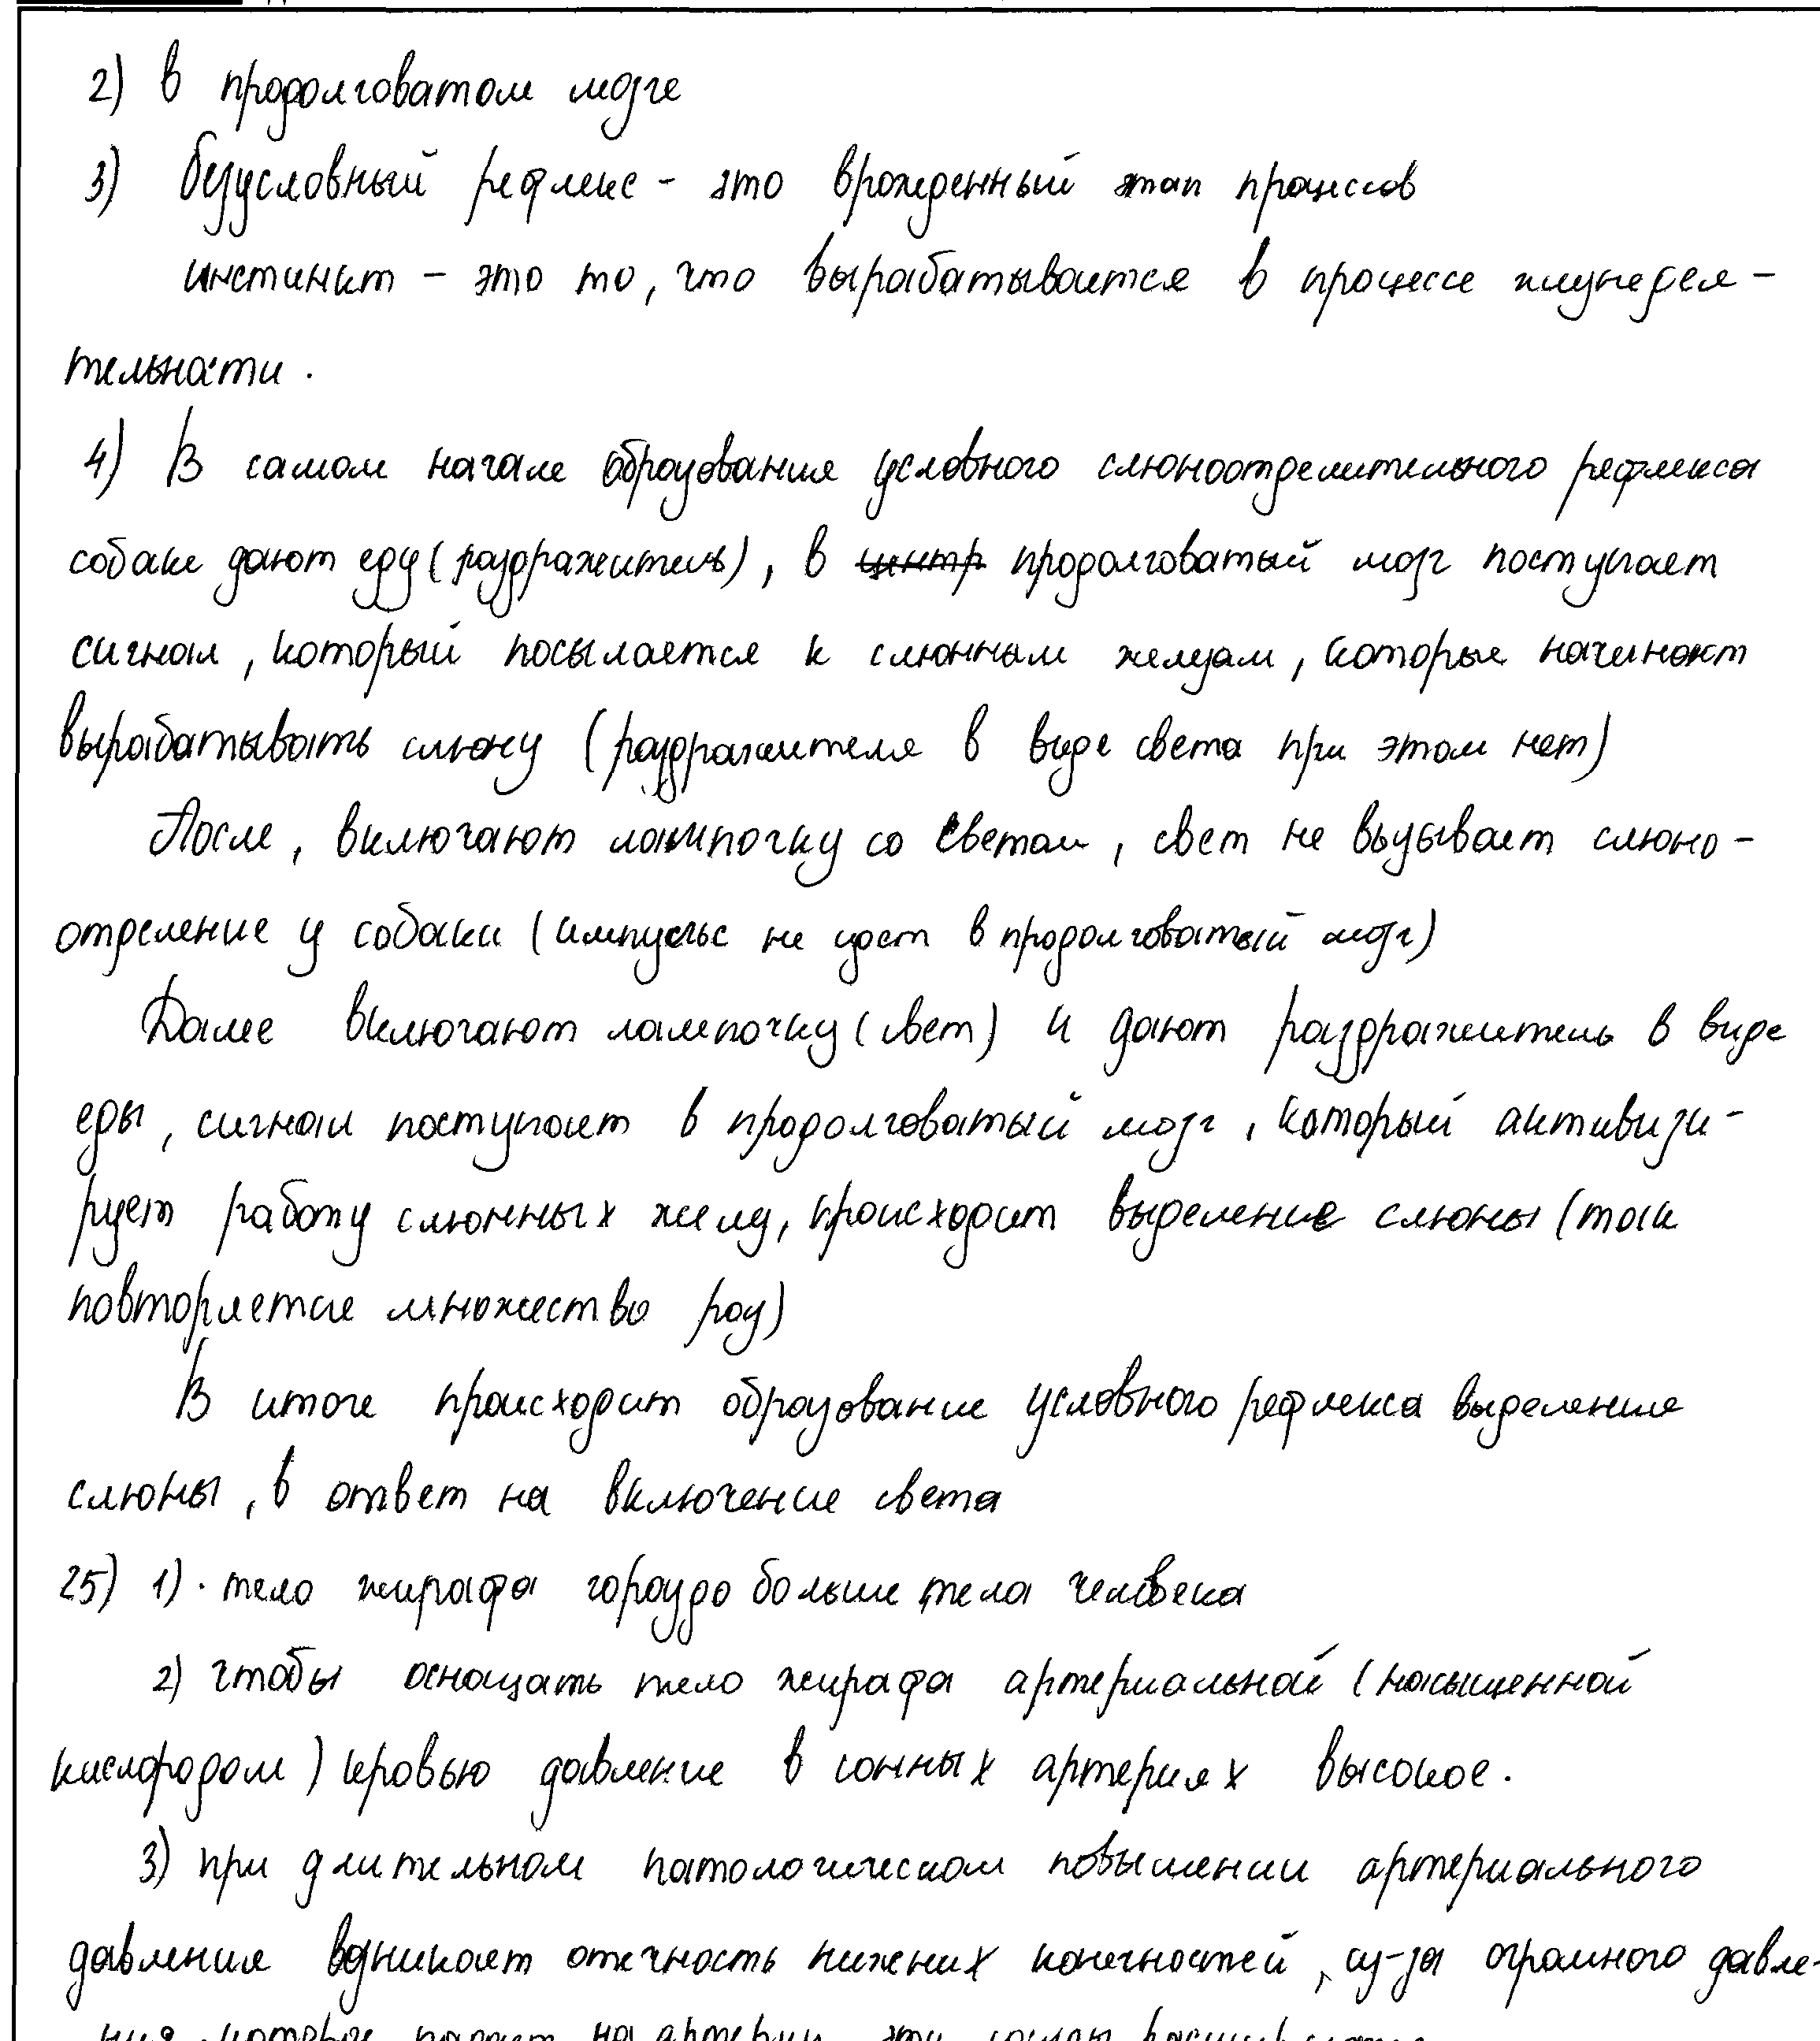 2) в продолговатом мозге
3) безусловный рефлекс - это врожденный этап процессов
инстинкт - это то, что вырабатывается в процессе жизнедея-
тельности.
4) В самом начале образования условного слюноотделительного рефлекса
собаке дают еду (раздражитель), в центр продолговатый мозг поступает
сигнал, который посылается к слюнным железам, которые начинают
вырабатывать слюну (раздражителя в виде света при этом нет)
После, включают лампочку со светом, свет не вызывает слюно-
отделение у собаки (импульс не идет в продолговатый мозг)
Далее включают лампочку (свет) и дают раздражитель в виде
еды, сигнал поступает в продолговатый мозг, который активизи-
рует работу слюнных желез, происходит выделение слюны (так
повторяется множество раз)
В итоге происходит образование условного рефлекса выделение
слюны, в ответ на включение света
25) 1). тело жирафа гораздо больше тела человека
2) чтобы оснащать тело жирафа артериальной (насыщенной
кислородом) кровью давление в сонных артериях высокое.
3) при длительном патологическом повышении артериального
давления возникает отечность нижених конечностей, из-за огромного давле-